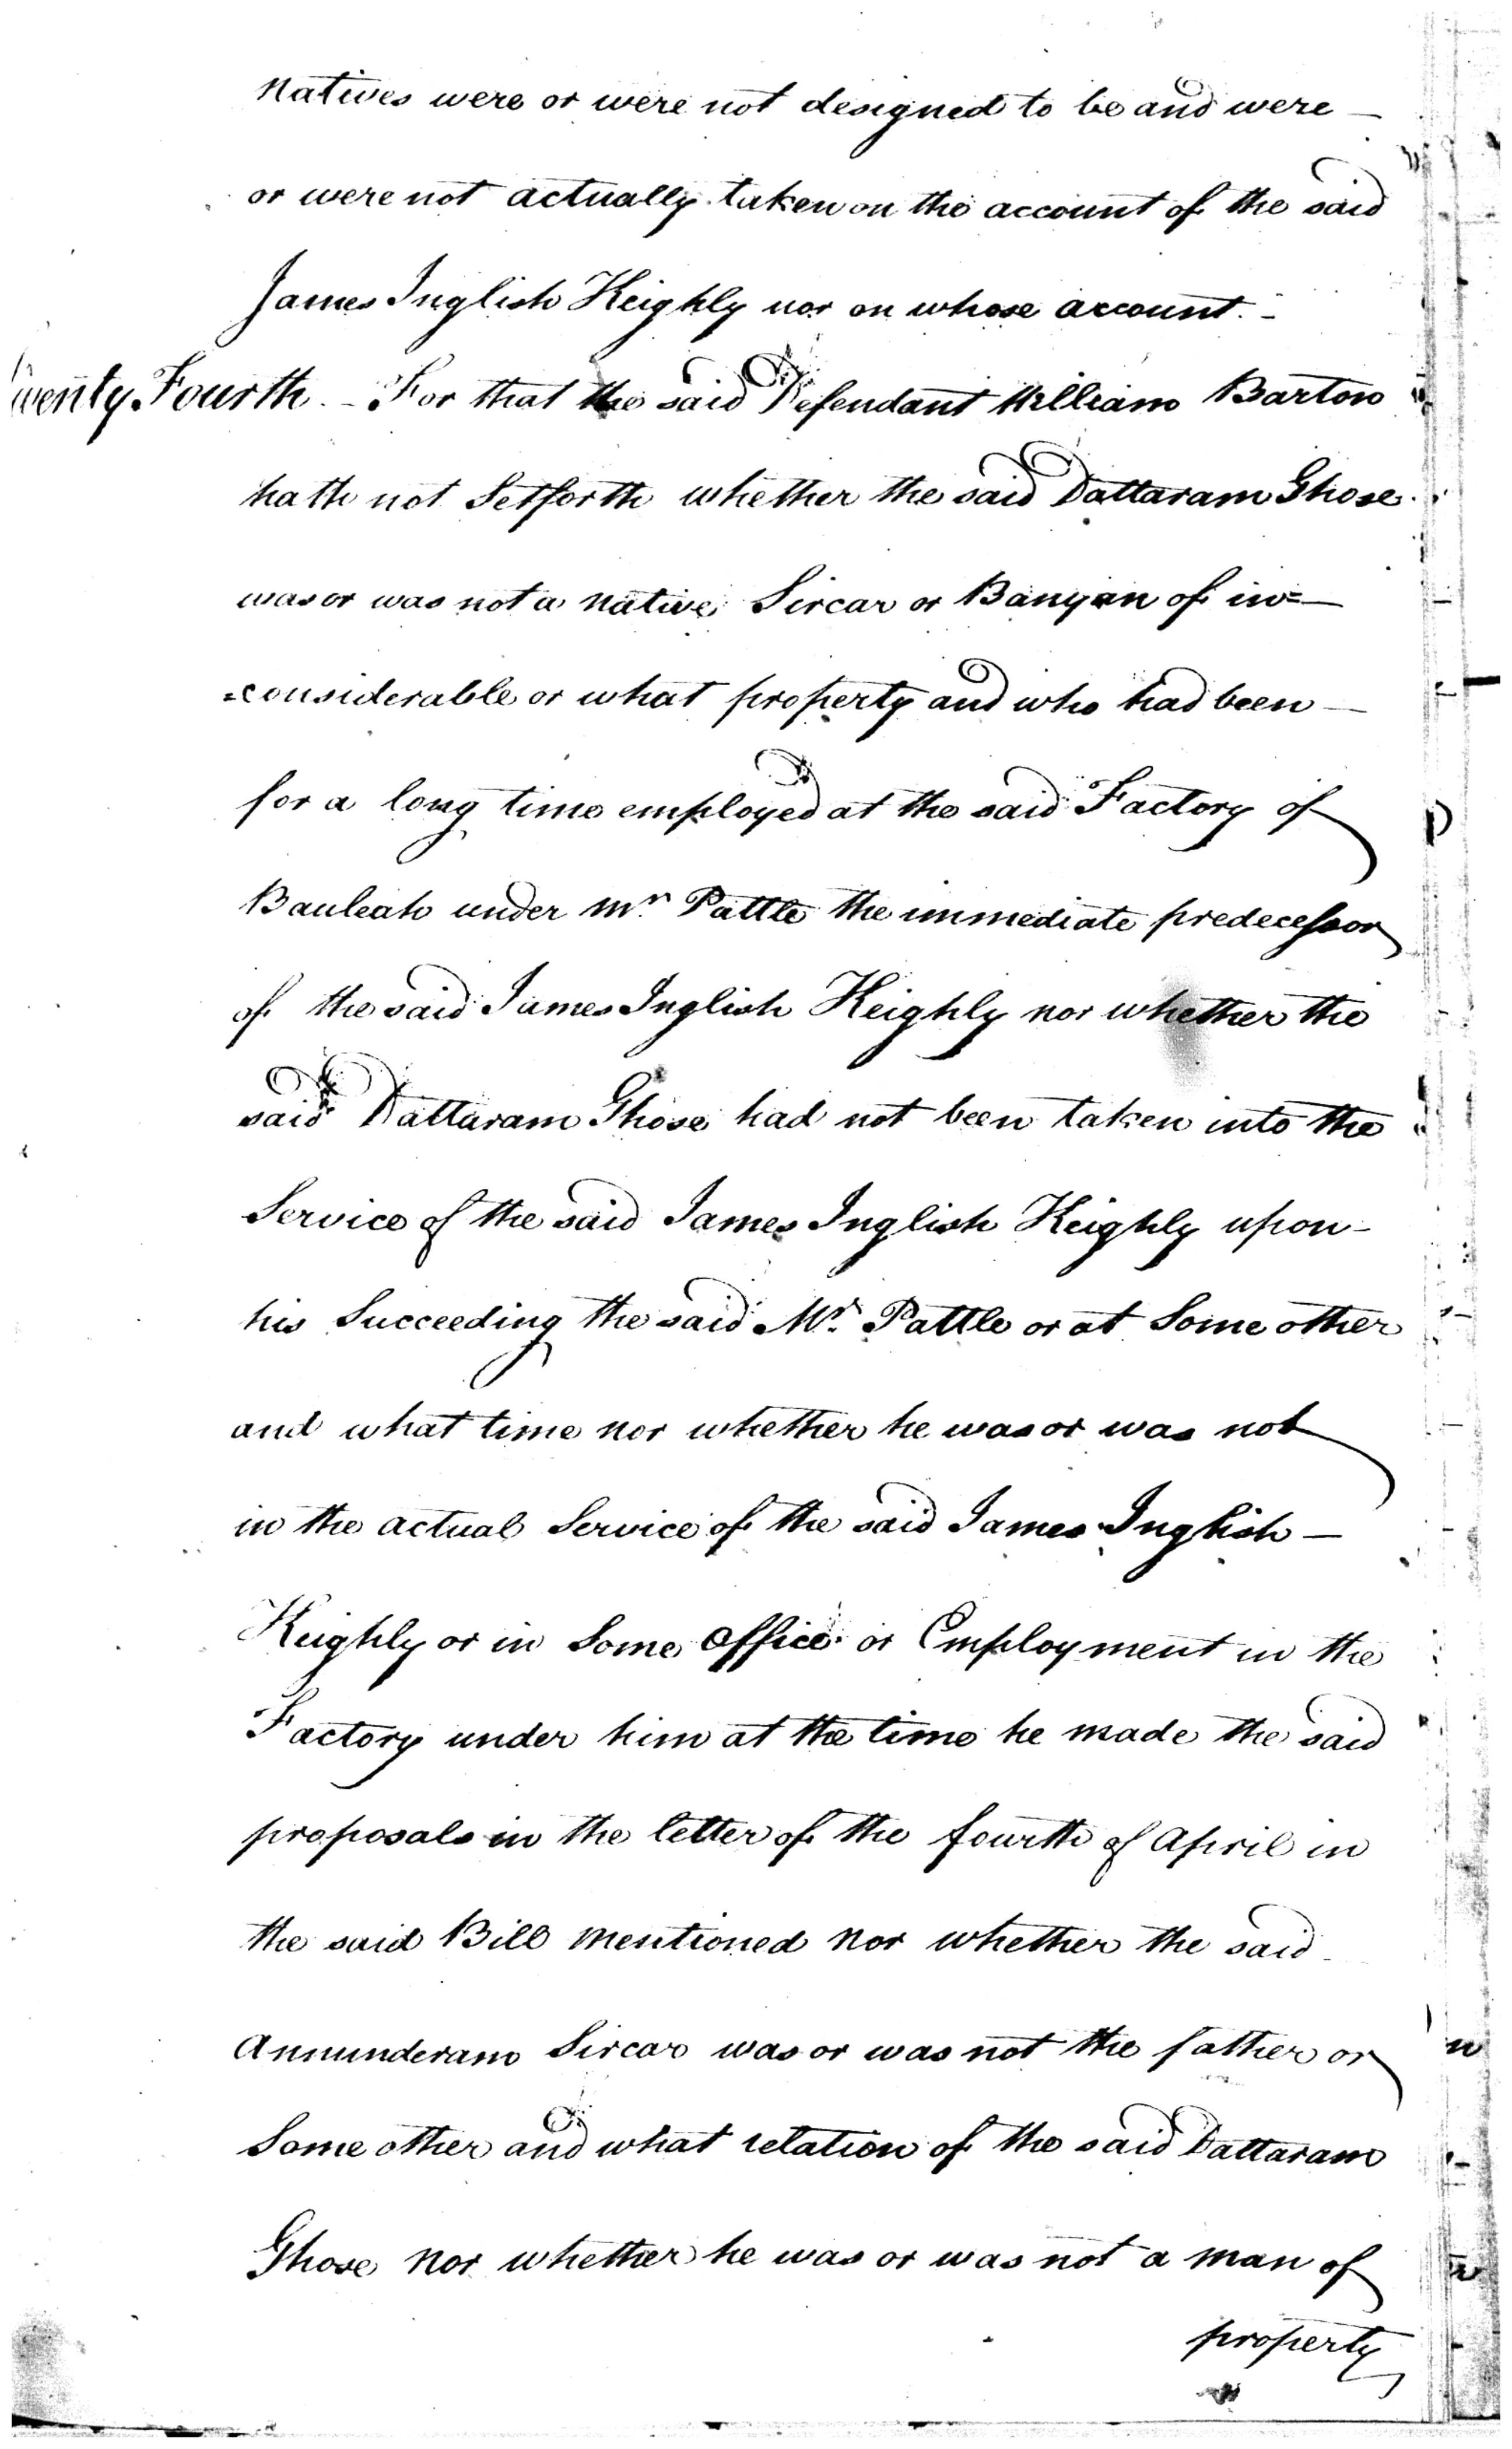 natives were or were not designed to be and were —
or were not actually taken on the account of the said
James Inglish Keighly nor on whose account. -
Twenty Fourth. - For that the said Defendant William Barton
hath not Setforth whether the said Dattaram Ghose
was or was not a native Sircar or Banyan of in=
=considerable or what property and who had been —
for a long time employed at the said Factory of
Bauleah under Mr. Pattle the immediate predecessor
of the said James Inglish Keighly nor whether the
said Dattaram Ghose had not been taken into the
Service of the said James Inglish Keighly upon -
his Succeeding the said Mr. Pattle or at Some other
and what time nor whether he was or was not
in the actual Service of the said James Inglish —
Keighly or in Some Office or Employment in the
Factory under him at the time he made the said
proposals in the letter of the fourth of April in
the said Bill mentioned nor whether the said
Annunderam Sircar was or was not the father or
Some other and what relation of the said Dattaram
Ghose nor whether he was or was not a man of
property